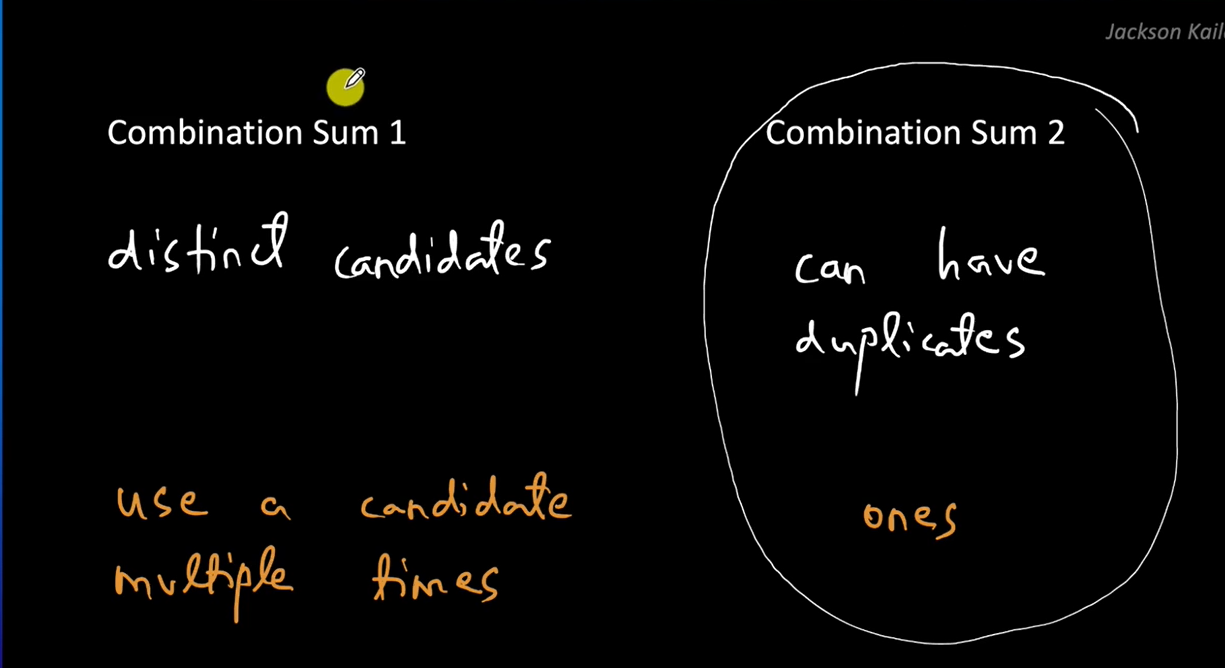 Jackson Kail
Combination Sum 1
distinct candidates
use a candidate
multiple times
Combination Sum 2
can have
duplicates
ones